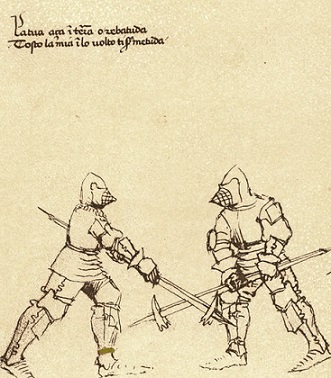 La tua aça in tera o rebatuda
Tosto la mia in lo volto ti serà metuda